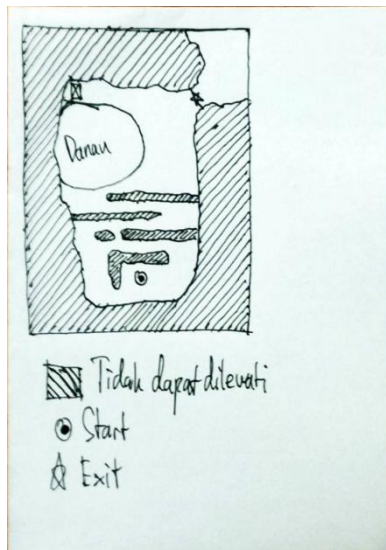 Danau
Tidak dapat dilewati
Start
Exit